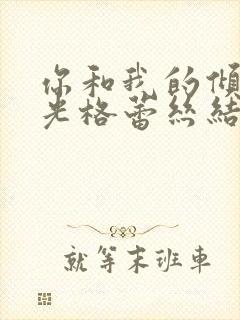 你和我的傾
光格蕾絲結
就等末班車